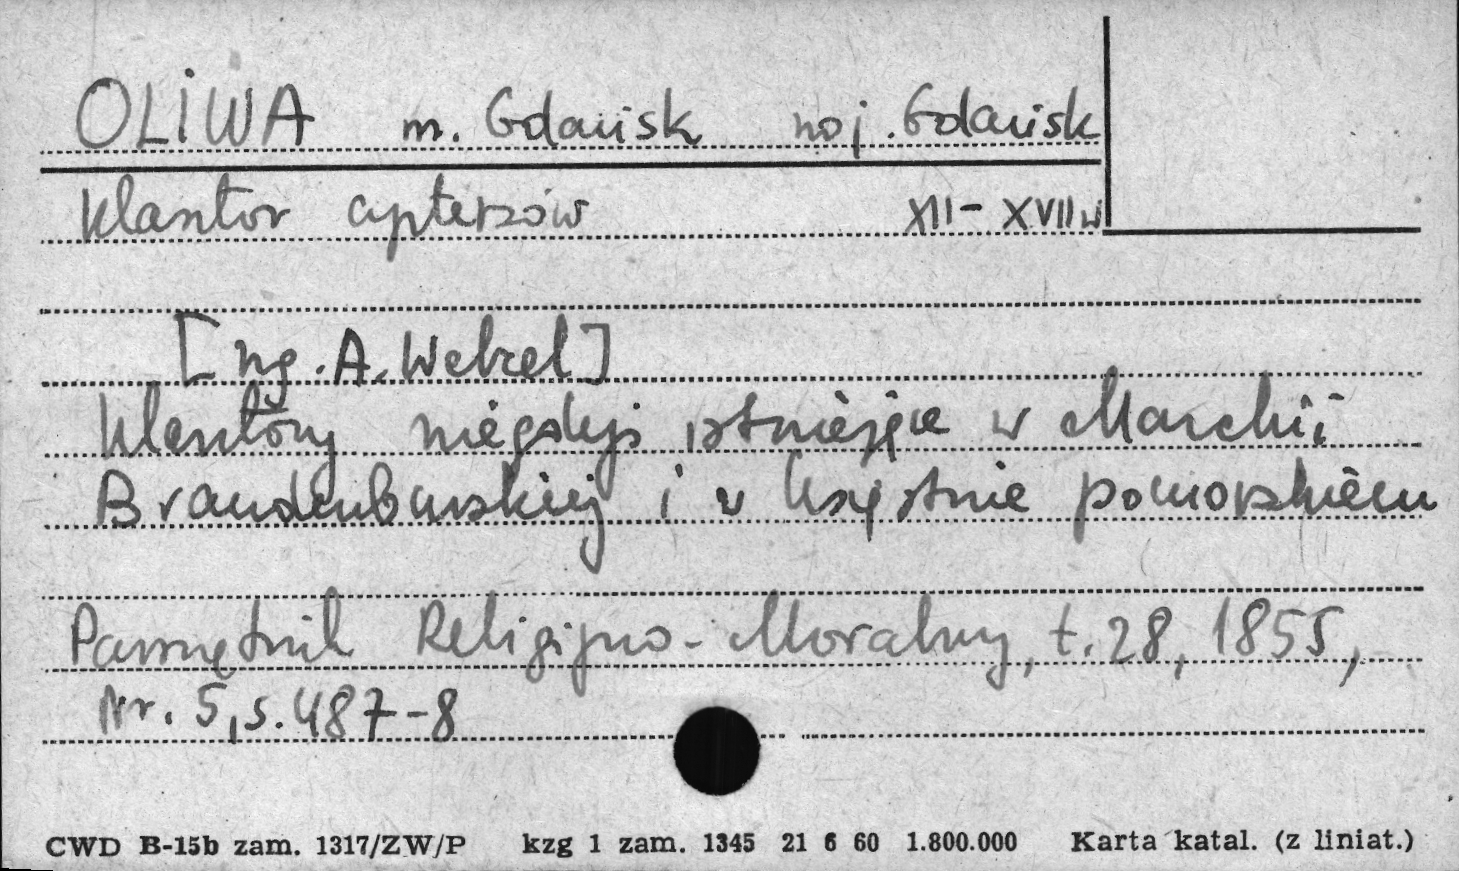 OLIWA m. Gdańsk woj. Gdańsk
Klasztor cystersów XII-XVII w
[wg. A. Wetzel]
Klasztory niegdyś istniejące w Marchii
Brandenburskiej i w księstwie pomorskiém
Pamiętnik Religijno-Moralny, t. 28, 1855,
Nr. 5, s. 487-8
CWD B-15b zam. 1317/ZW/P kzg 1 zam. 1345 21 6 60 1.800.000 Karta katal. (z liniat.)